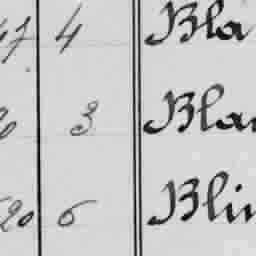 47 4 Bla
3 Bla
20 6 Bli